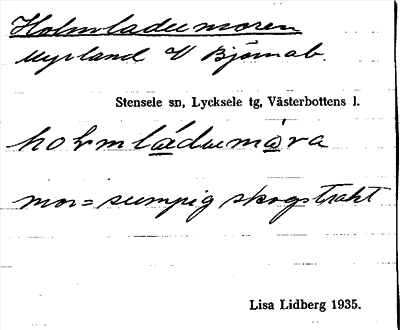 Holmladuemoren
Myrland V Björnab.
Stensele sn, Lycksele tg, Västerbottens l.
holmláduemàra
mor= sumpig skogstrakt
Lisa Lidberg 1935.